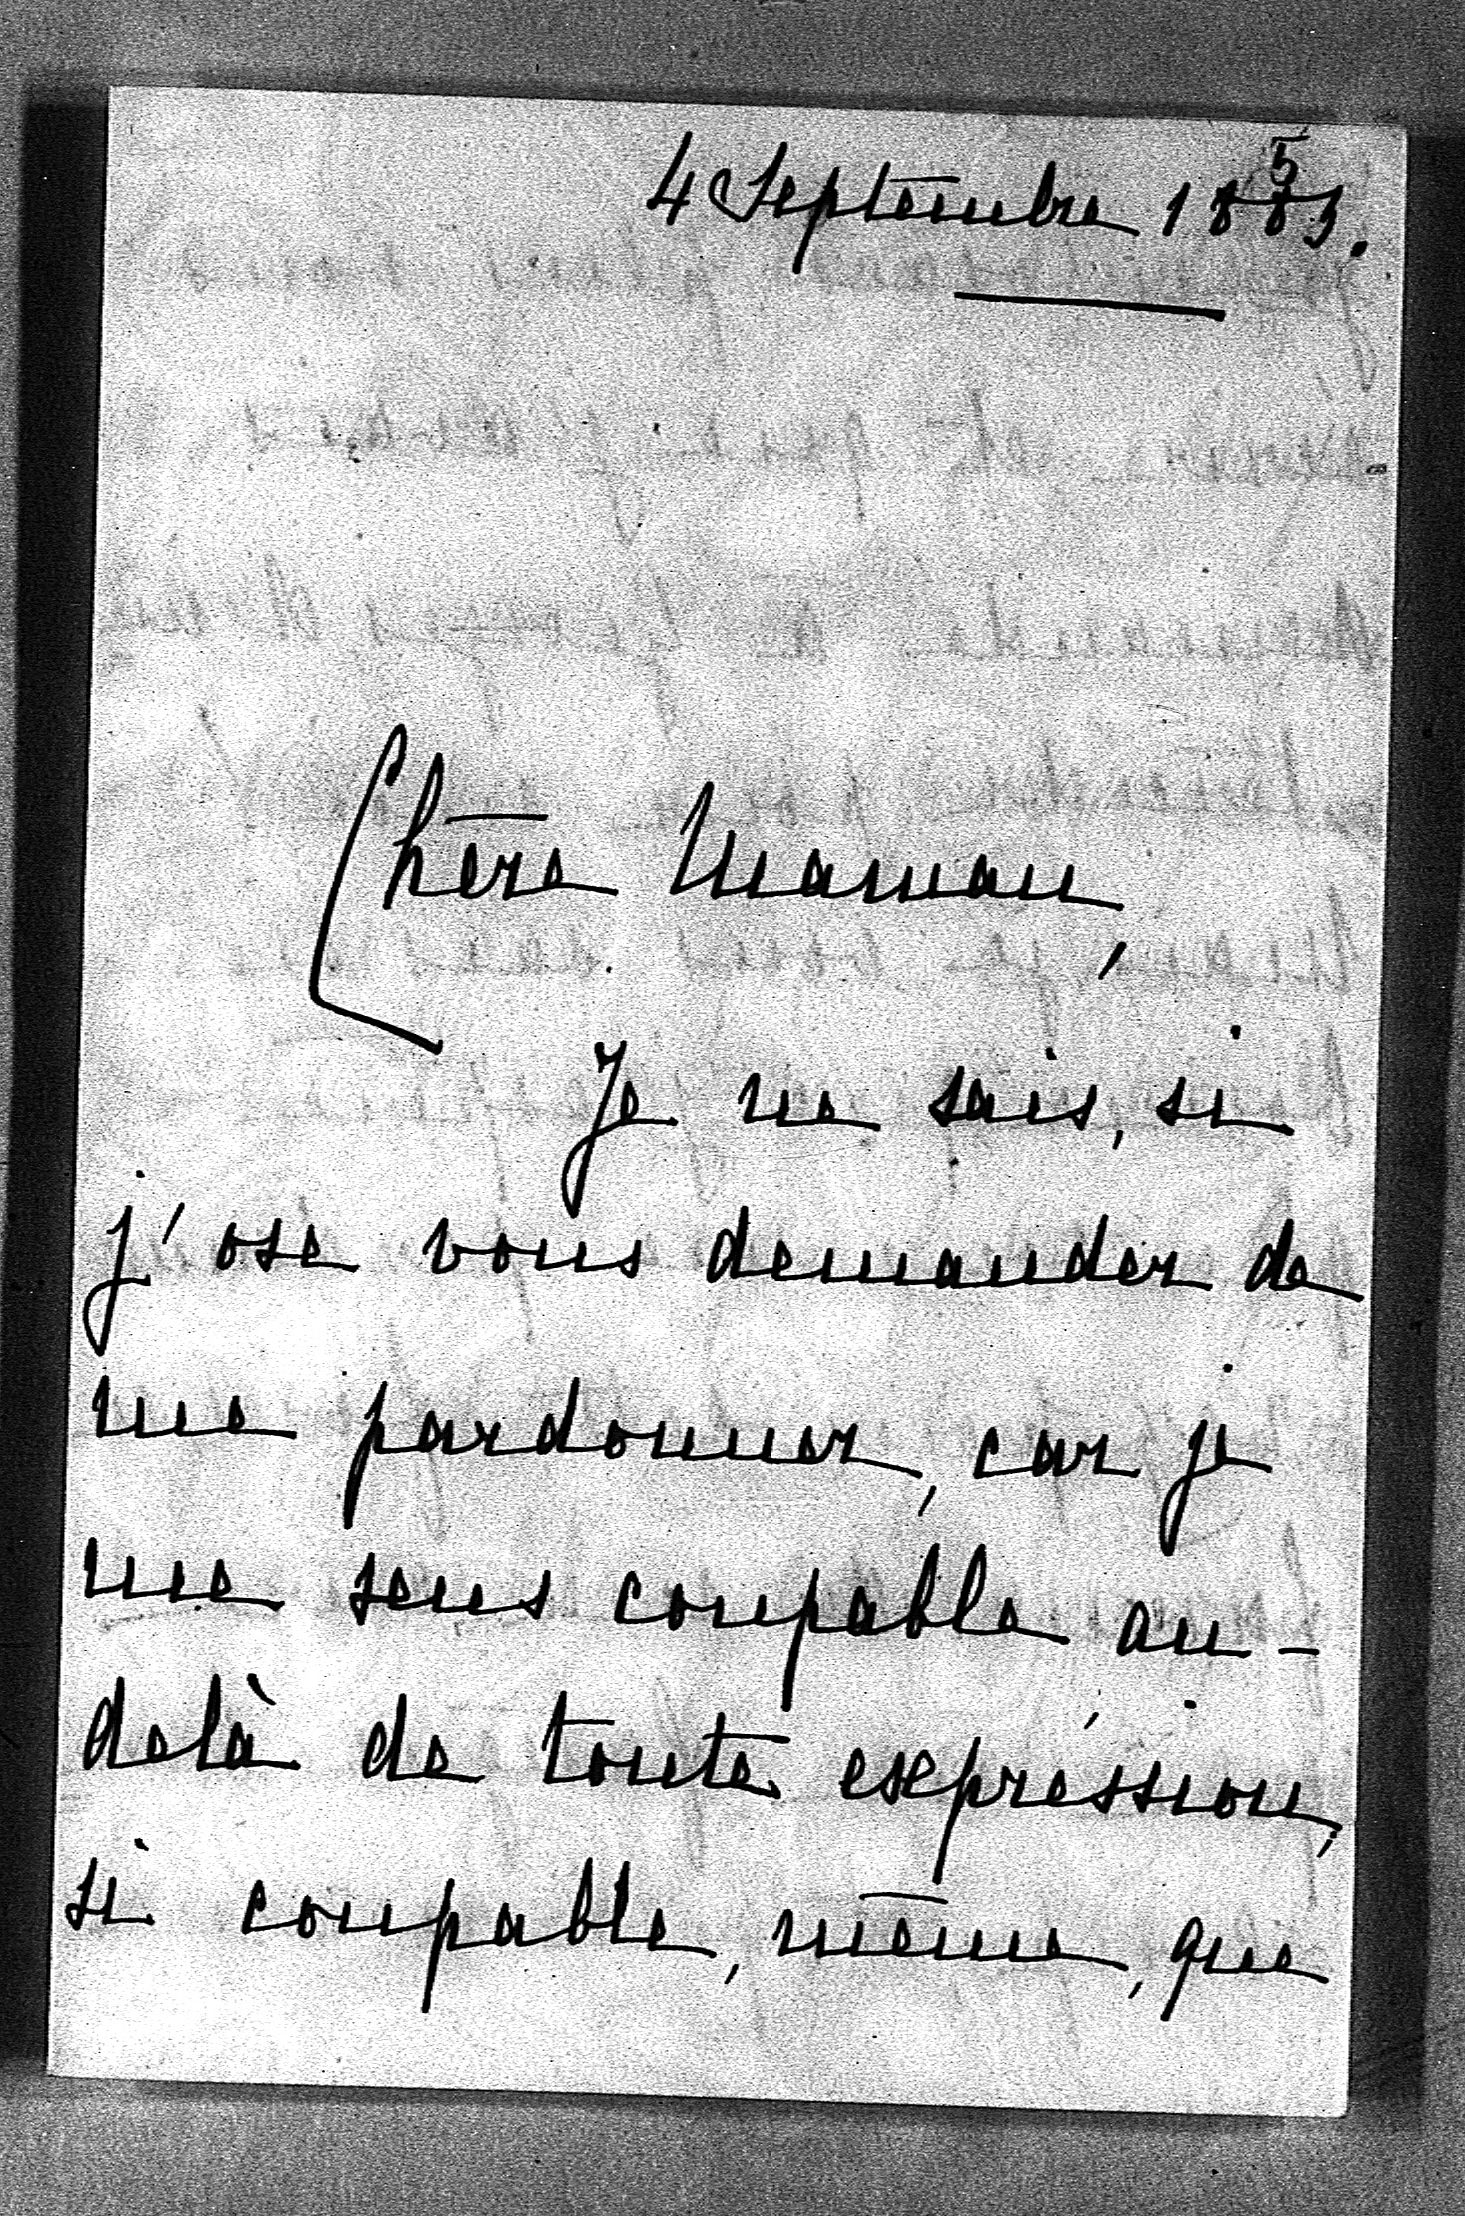 4 Septembre 1883.
5
Chère Maman,
Je ne sais, si
j'ose vous demander de
me pardonner, car je
me sens coupable au-
delà de toute expréssion,
si coupable, même, que